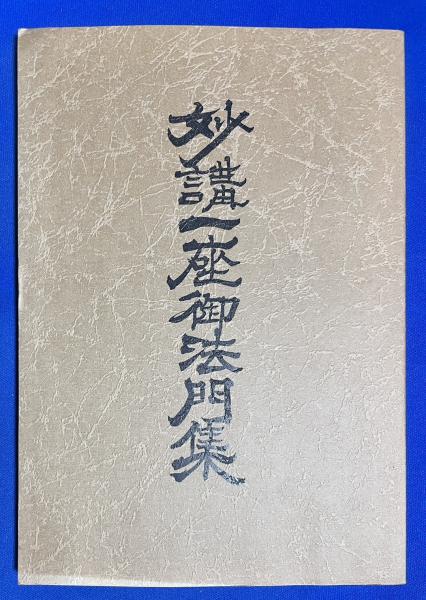 妙講一座御法門集